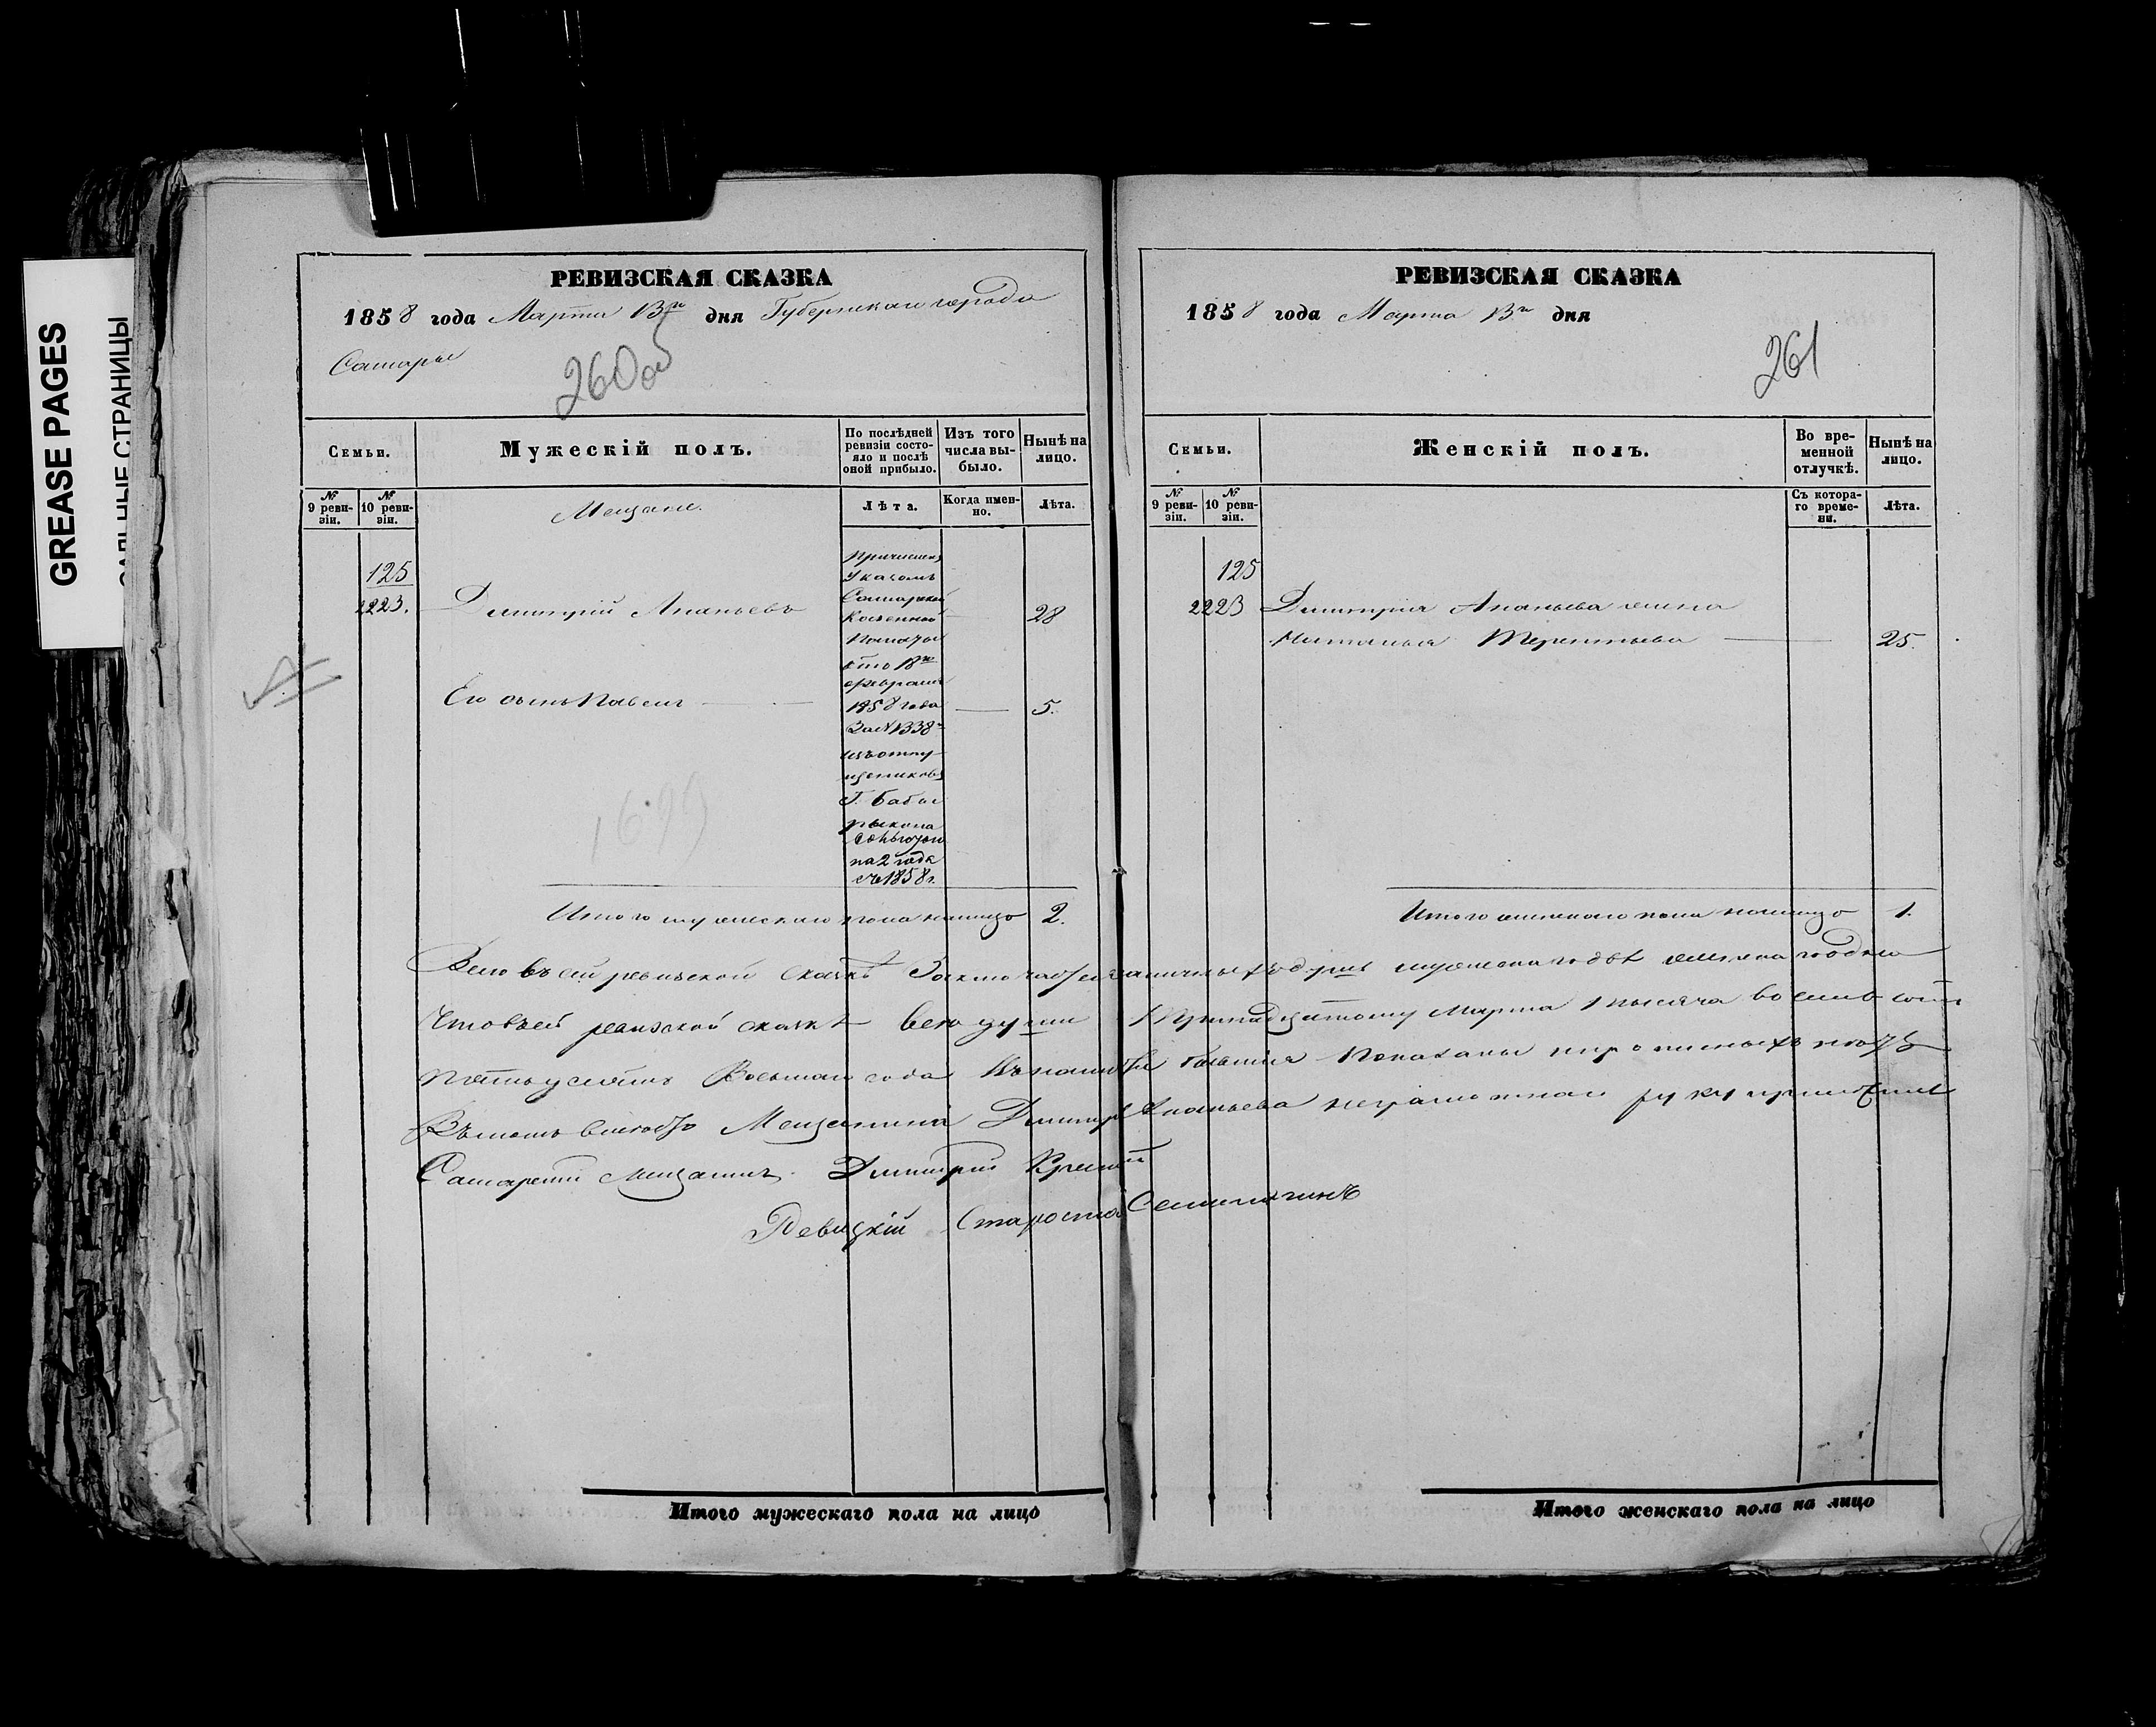 GREASE PAGES
САЛЬНЫЕ СТРАНИЦЫ
РЕВИЗСКАЯ СКАЗКА
1858 года Марта 13го дня Губернскаго города
Самары
260об
Семьи.
Мужескій полъ.
По послѣдней ревизіи состояло и послѣ оной прибыло.
Изъ того числа выбыло.
Нынѣ на лицо.
№ 9 ревизіи.
№ 10 ревизіи.
Мещане.
Лѣта.
Когда именно.
Лѣта.
125
2223.
Дмитрій Ананьевъ
28
Его сынъ Павелъ
5.
Причислен
Указомъ
Самарской
Казенной
Палаты
отъ 18го
февраля
1858 года
За №1338
изъ отпу
щениковъ
Г.
на 2 года
съ 1858 г.
1699
Итого мужескаго пола налицо 2.
РЕВИЗСКАЯ СКАЗКА
1858 года Марта 13го дня
261
Семьи.
Женскій полъ.
Во временной отлучкѣ.
Нынѣ на лицо.
№ 9 ревизіи.
№ 10 ревизіи.
Съ котораго времени.
Лѣта.
125
2223
Дмитрія Ананьева жена
Наталья Терентьева
25.
Итого женскаго пола налицо 1.
Всего въ сей ревизской сказкѣ заключается наличныхъ душъ мужеска пола двѣ женска одна
Что въ сей ревизской сказкѣ все души к тринадцатому марта тысяча восемь сотъ
пятьдесятъ восьмаго года въ на бывшія показаны и прописныхъ нетъ
въ томъ вместо Мещанина Дмитрія Ананьева неграмотнаго руку приложилъ
Самарскій мещанинъ Дмитрій
Ревизскій Староста
Итого мужескаго пола на лицо
Итого женскаго пола на лицо